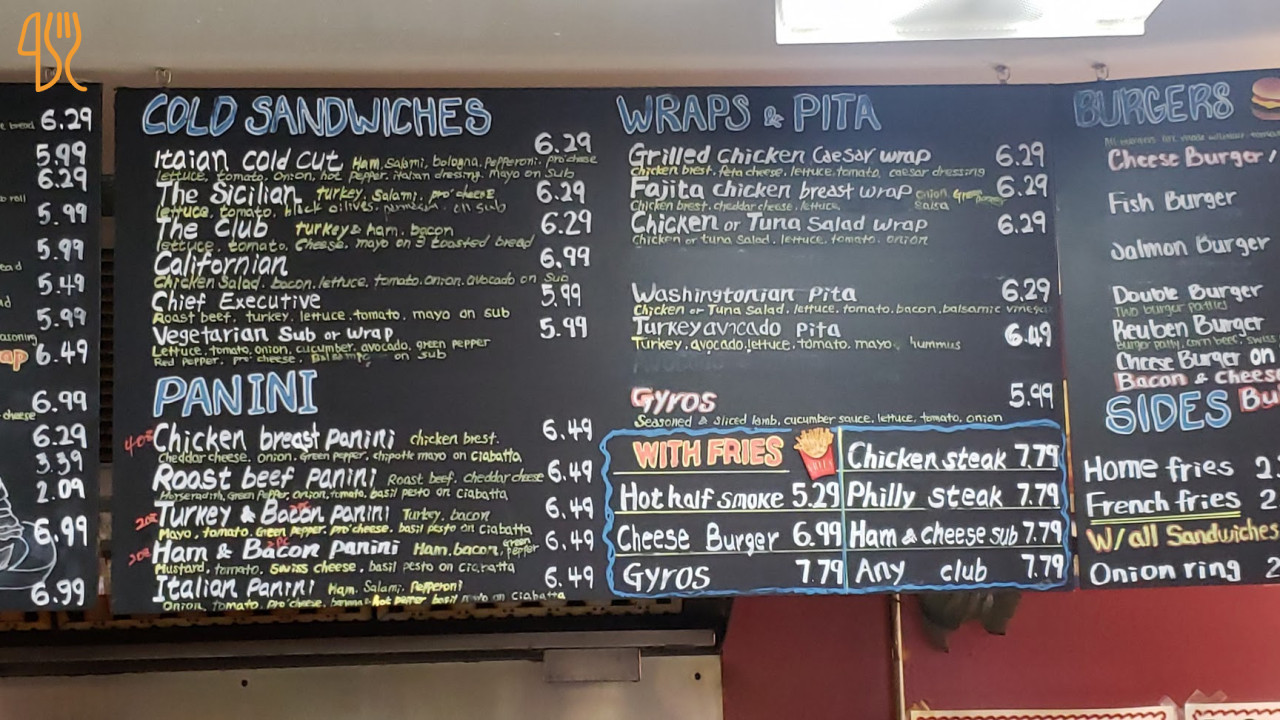 e bread 6.29
5.99
6.29
o roll
5.99
5.99
ead
5.49
ad
5.99
asoning
ap 6.49
6.99
cheese
6.29
3.39
2.09
6.99
6.99
COLD SANDWICHES
Itaian cold cut Ham, Salami, bologna, Pepperoni, pro'cheese 6.29
lettuce, tomato, Onion, hot Pepper, italian dressing, Mayo on Sub
The Sicilian turkey, Salami, pro'cheese 6.29
lettuce, tomato, black olives, on sub
The Club turkey & Ham, bacon 6.29
lettuce, tomato, Cheese, mayo on 3 toasted bread
Californian 6.99
Chicken Salad, bacon, lettuce, tomato, Onion, avocado on Sub
Chief Executive 5.99
Roast beef, turkey, lettuce, tomato, mayo on sub
Vegetarian Sub or wrap 5.99
Lettuce, tomato, onion, cucumber, avocado, green pepper
Red pepper, pro'cheese, on sub
PANINI
Chicken breast panini chicken brest, 6.49
Cheddar cheese, onion, Green pepper, chipotle mayo on Ciabatta
Roast beef panini Roast beef, cheddar cheese 6.49
Horseradish, Green Pepper, onion, tomato, basil pesto on Ciabatta
Turkey & Bacon panini Turkey, bacon 6.49
Mayo, tomato, Green pepper, pro'cheese, basil pesto on Ciabatta
Ham & Bacon panini Ham, bacon, green pepper 6.49
Mustard, tomato, Swiss cheese, basil pesto on Ciabatta
Italian Panini Ham, Salami, Pepperoni 6.49
Onion, tomato, pro'cheese, hot pepper on Ciabatta
WRAPS & PITA
Grilled chicken Caesar wrap 6.29
Chicken brest, feta cheese, lettuce, tomato, caesar dressing
Fajita chicken breast wrap onion, Green pepper 6.29
Chicken brest, cheddar cheese, lettuce, Salsa
Chicken or Tuna Salad wrap 6.29
Chicken or tuna Salad, lettuce, tomato, onion
Washingtonian Pita 6.29
Chicken or Tuna Salad, lettuce, tomato, bacon, balsamic
Turkey avocado Pita 6.49
Turkey, avocado, lettuce, tomato, mayo, hummus
Gyros 5.99
Seasoned & Sliced lamb, cucumber sauce, lettuce, tomato, onion
WITH FRIES
Hot half smoke 5.29
Cheese Burger 6.99
Gyros 7.79
Chicken steak 7.79
Philly steak 7.79
Ham & cheese sub 7.79
Any club 7.79
BURGERS
Cheese Burger /
Fish Burger
Salmon Burger
Double Burger
Two burger patties
Reuben Burger
Burger patty, corn beef, Swiss
Cheese Burger on
Bacon & Cheese
Bu
SIDES
Home fries 2.
French fries 2
W/all Sandwiches
Onion ring 2